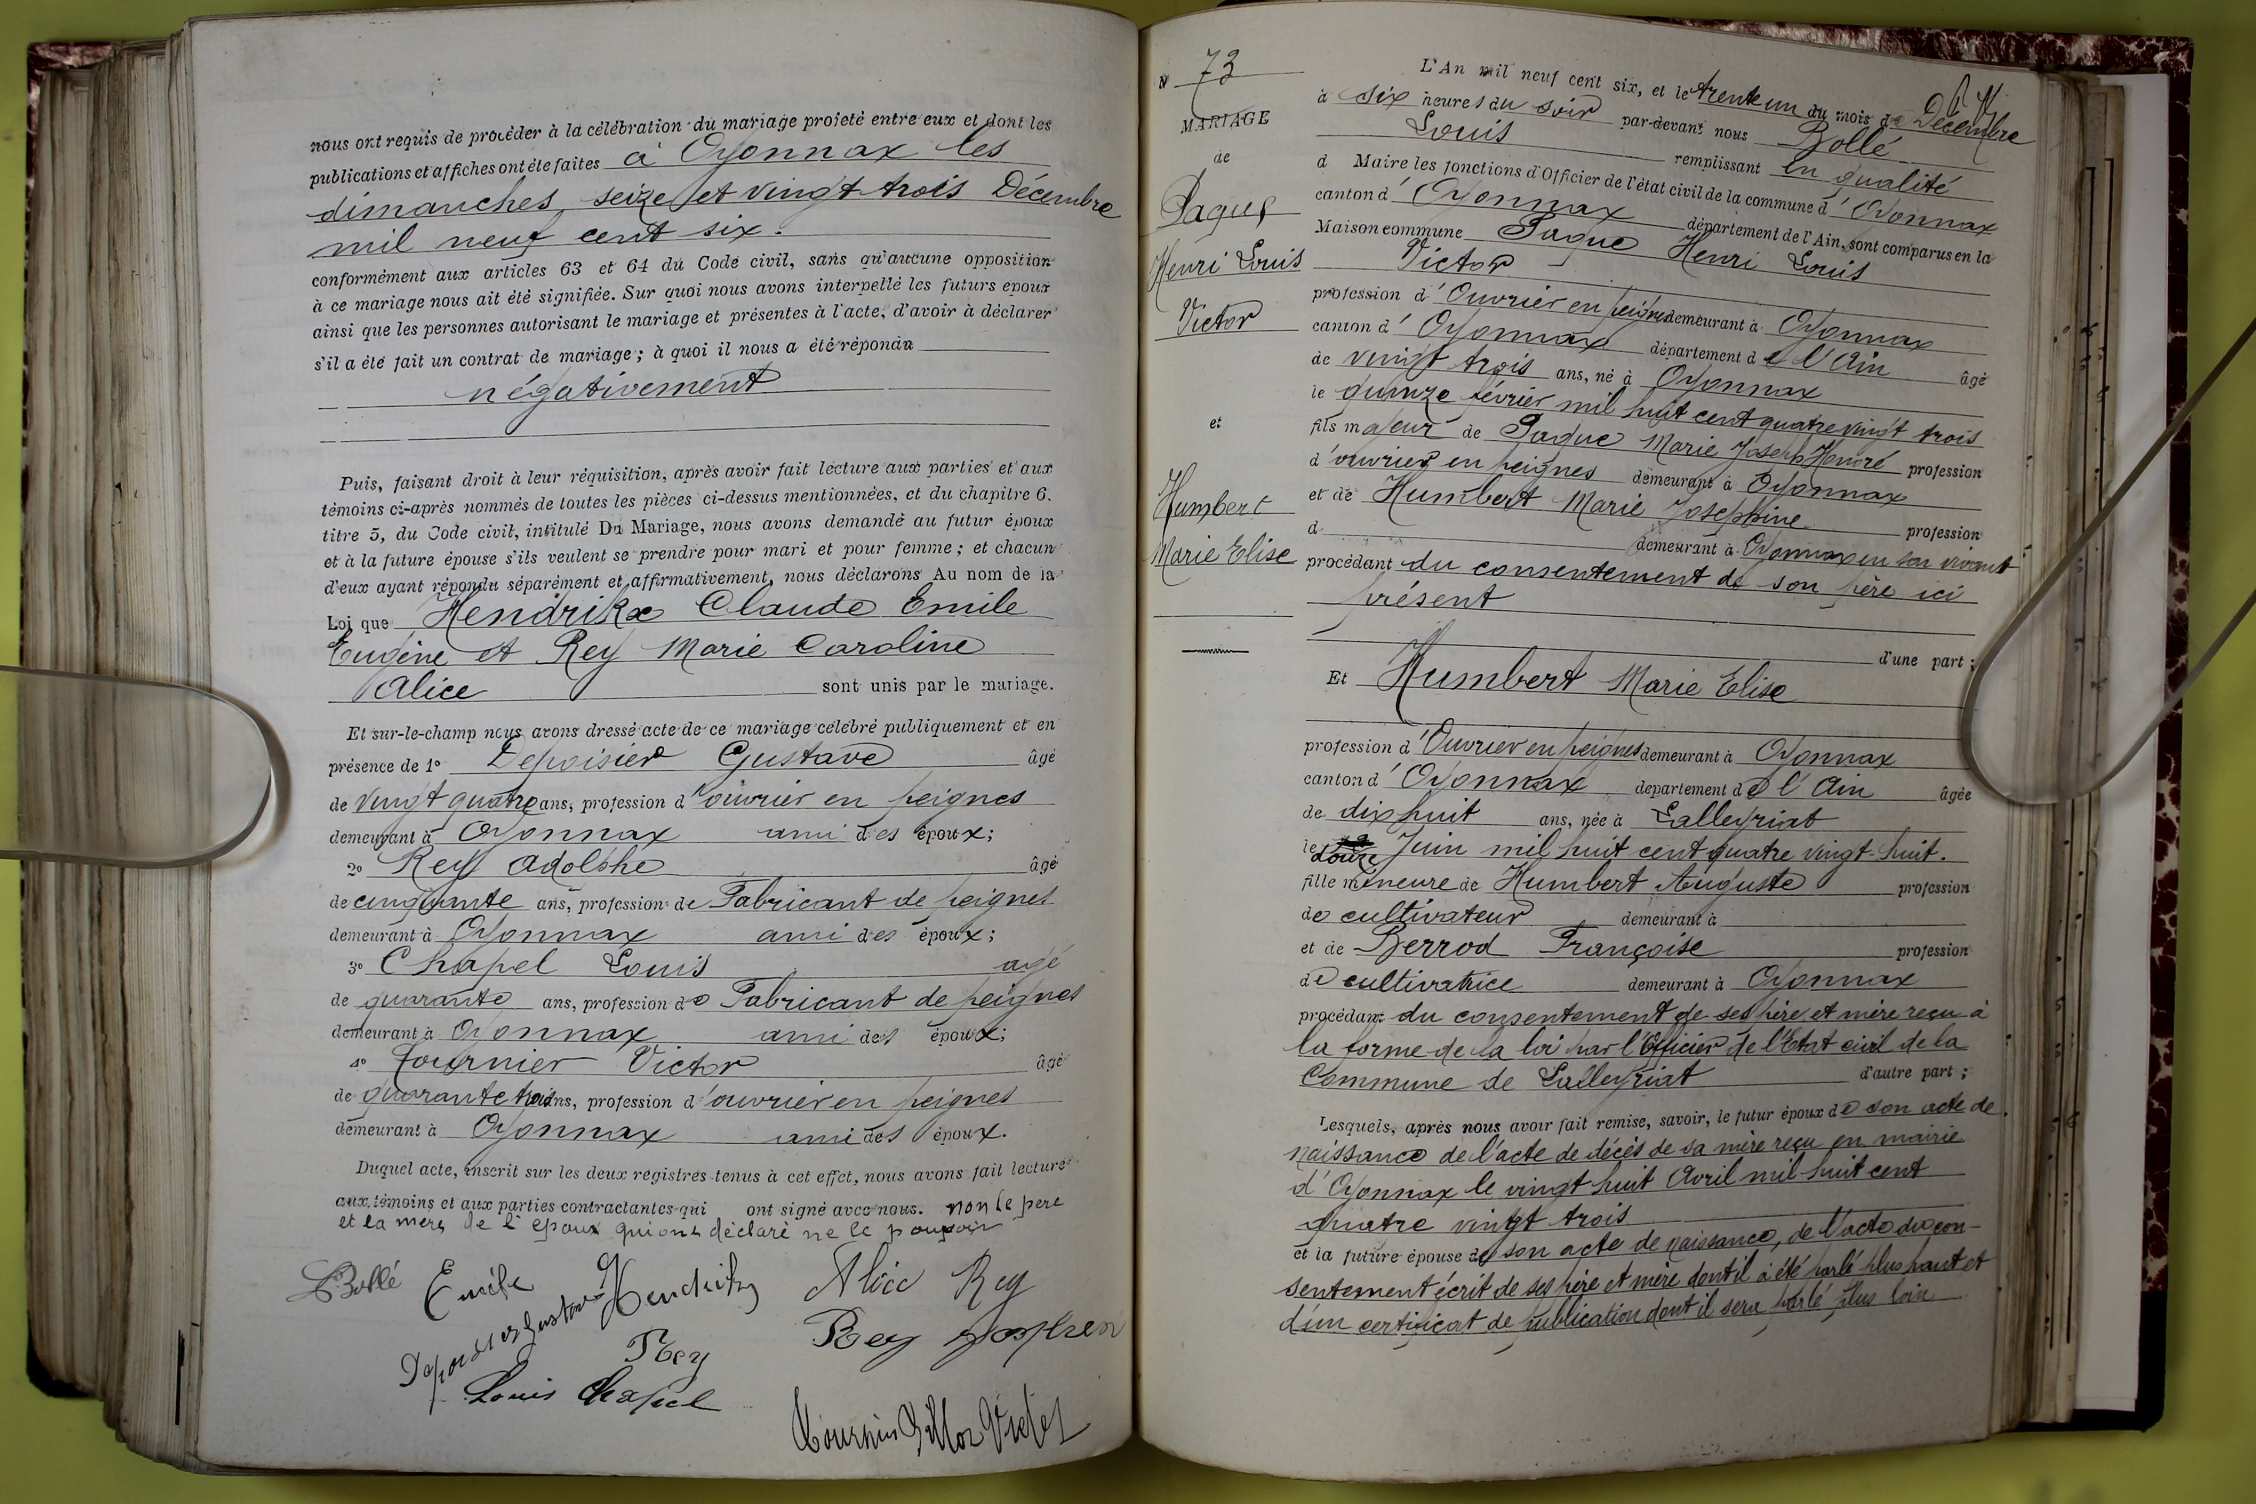 nous ont requis de procéder à la célébration du mariage projeté entre eux et dont les
publications et affiches ont été faites à Oyonnax les
dimanches seize et vingt-trois Décembre
mil neuf cent six.
conformément aux articles 63 et 64 du Code civil, sans qu'aucune opposition
à ce mariage nous ait été signifiée. Sur quoi nous avons interpellé les futurs époux
ainsi que les personnes autorisant le mariage et présentes à l'acte, d'avoir à déclarer
s'il a été fait un contrat de mariage ; à quoi il nous a été répondu
négativement
Puis, faisant droit à leur réquisition, après avoir fait lecture aux parties et aux
témoins ci-après nommés de toutes les pièces ci-dessus mentionnées, et du chapitre 6,
titre 5, du Code civil, intitulé Du Mariage, nous avons demandé au futur époux
et à la future épouse s'ils veulent se prendre pour mari et pour femme ; et chacun
d'eux ayant répondu séparément et affirmativement, nous déclarons Au nom de la
Loi que Hendrikx Claude Emile
Eugène et Rey Marie Caroline
Alice sont unis par le mariage.
Et sur-le-champ nous avons dressé acte de ce mariage célébré publiquement et en
présence de 1° Depoisier Gustave âgé
de vingt quatre ans, profession d'ouvrier en peignes
demeurant à Oyonnax ami des époux ;
2° Rey Adolphe âgé
de cinquante ans, profession de Fabricant de peignes
demeurant à Oyonnax ami des époux ;
3° Chapel Louis agé
de quarante ans, profession de Fabricant de peignes
demeurant à Oyonnax ami des époux ;
4° Fournier Victor âgé
de quarante trois ans, profession d'ouvrier en peignes
demeurant à Oyonnax ami des époux.
Duquel acte, inscrit sur les deux registres tenus à cet effet, nous avons fait lecture
aux témoins et aux parties contractantes qui ont signé avec nous. non le pere
et la mere de l'epoux qui ont déclaré ne le pouvoir
Bollé Emile Hendrikx Alice Rey
Depoisier Gustave Rey Rey
Louis Chapel
Fournier Victor
N° 73
MARIAGE
de
Pague
Henri Louis
Victor
et
Humbert
Marie Elise
L'An mil neuf cent six, et le trente un du mois de Décembre
à six heures du soir par-devant nous Bollé
Louis remplissant en qualité
d Maire les fonctions d'Officier de l'état civil de la commune d'Oyonnax
canton d'Oyonnax département de l'Ain, sont comparus en la
Maison commune Pague Henri Louis
Victor
profession d'Ouvrier en peignes demeurant à Oyonnax
canton d'Oyonnax département de l'Ain âgé
de vingt trois ans, né à Oyonnax
le quinze février mil huit cent quatre vingt trois
fils majeur de Pague Marie Joseph Honoré profession
d'ouvrier en peignes demeurant à Oyonnax
et de Humbert Marie Josephine profession
d demeurant à Oyonnax en son vivant
procédant du consentement de son père ici
présent
d'une part ;
Et Humbert Marie Elise
profession d'Ouvrier en peignes demeurant à Oyonnax
canton d'Oyonnax département de l'Ain âgée
de dix huit ans, née à Lalleyriat
le douze Juin mil huit cent quatre vingt-huit.
fille mineure de Humbert Auguste profession
de cultivateur demeurant à
et de Berrod Françoise profession
de cultivatrice demeurant à Oyonnax
procédant du consentement de ses père et mère reçu à
la forme de la loi par l'Officier de l'Etat civil de la
Commune de Lalleyriat d'autre part ;
Lesquels, après nous avoir fait remise, savoir, le futur époux de son acte de
naissance de l'acte de décès de sa mère reçu en mairie
d'Oyonnax le vingt huit Avril mil huit cent
quatre vingt trois
et la future épouse de son acte de naissance, de l'acte du con-
sentement écrit de ses père et mère dont il a été parlé plus haut et
d'un certificat de publication dont il sera parlé plus loin